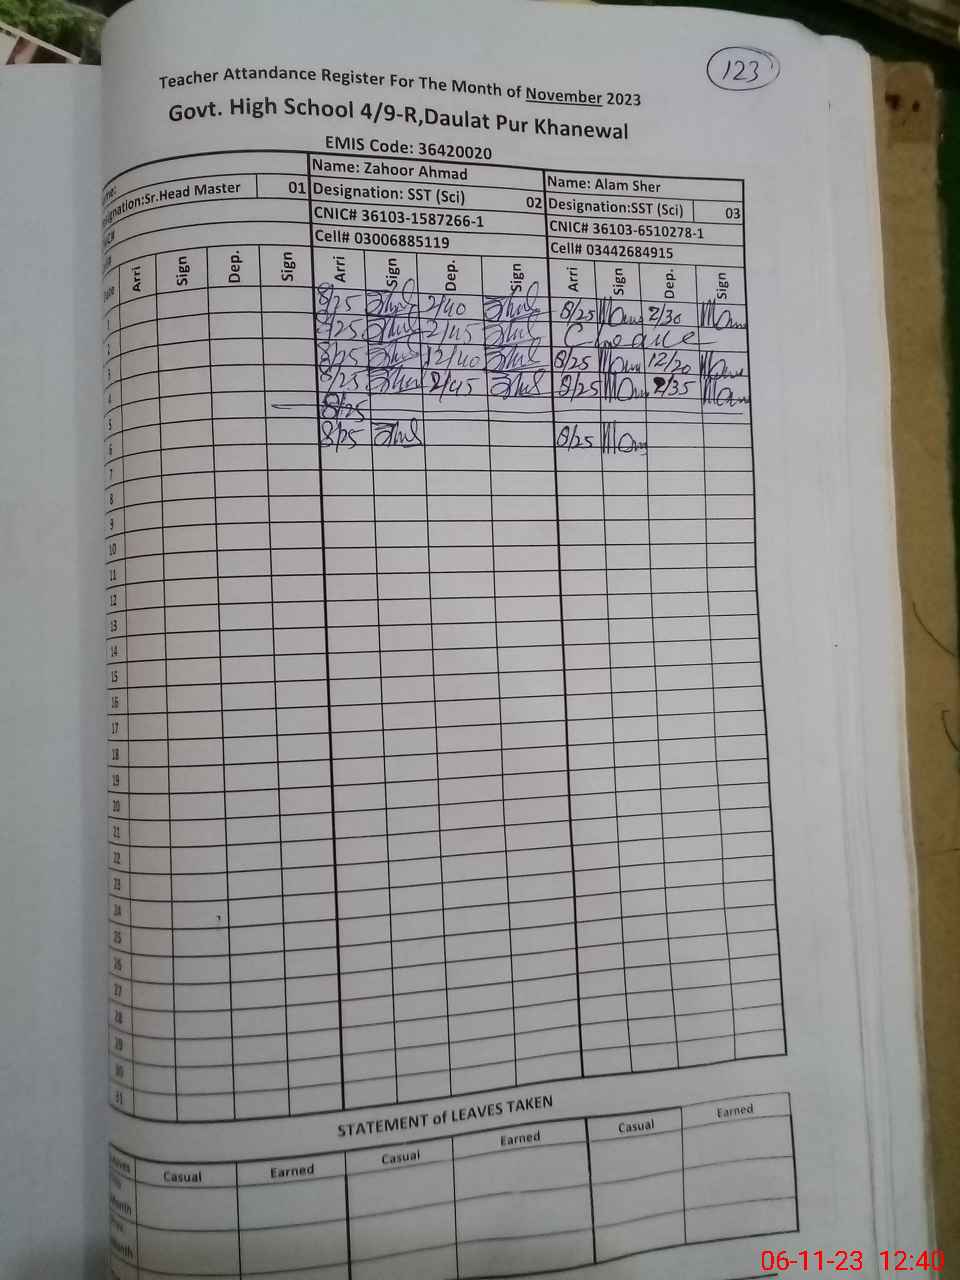 123
Teacher Attandance Register For The Month of November 2023
Govt. High School 4/9-R,Daulat Pur Khanewal
EMIS Code: 36420020
Name: Zahoor Ahmad Name: Alam Sher
Sr.Head Master 01 Designation: SST (Sci) 02 Designation:SST (Sci) 03
CNIC# 36103-1587266-1 CNIC# 36103-6510278-1
Cell# 03006885119 Cell# 03442684915
Arri Sign Dep. Sign Arri Sign Dep. Sign Arri Sign Dep. Sign
1 8/25 2/40 8/25 2/30
2 8/25 2/45
3 8/25 12/40 8/25 12/20
4 8/25 2/45 8/25 2/35
5 8/25
6 8/25 8/25
7
8
9
10
11
12
13
14
15
16
17
18
19
20
21
22
23
24
25
26
27
28
29
30
31
STATEMENT of LEAVES TAKEN
Casual Earned Casual Earned Casual Earned
06-11-23 12:40